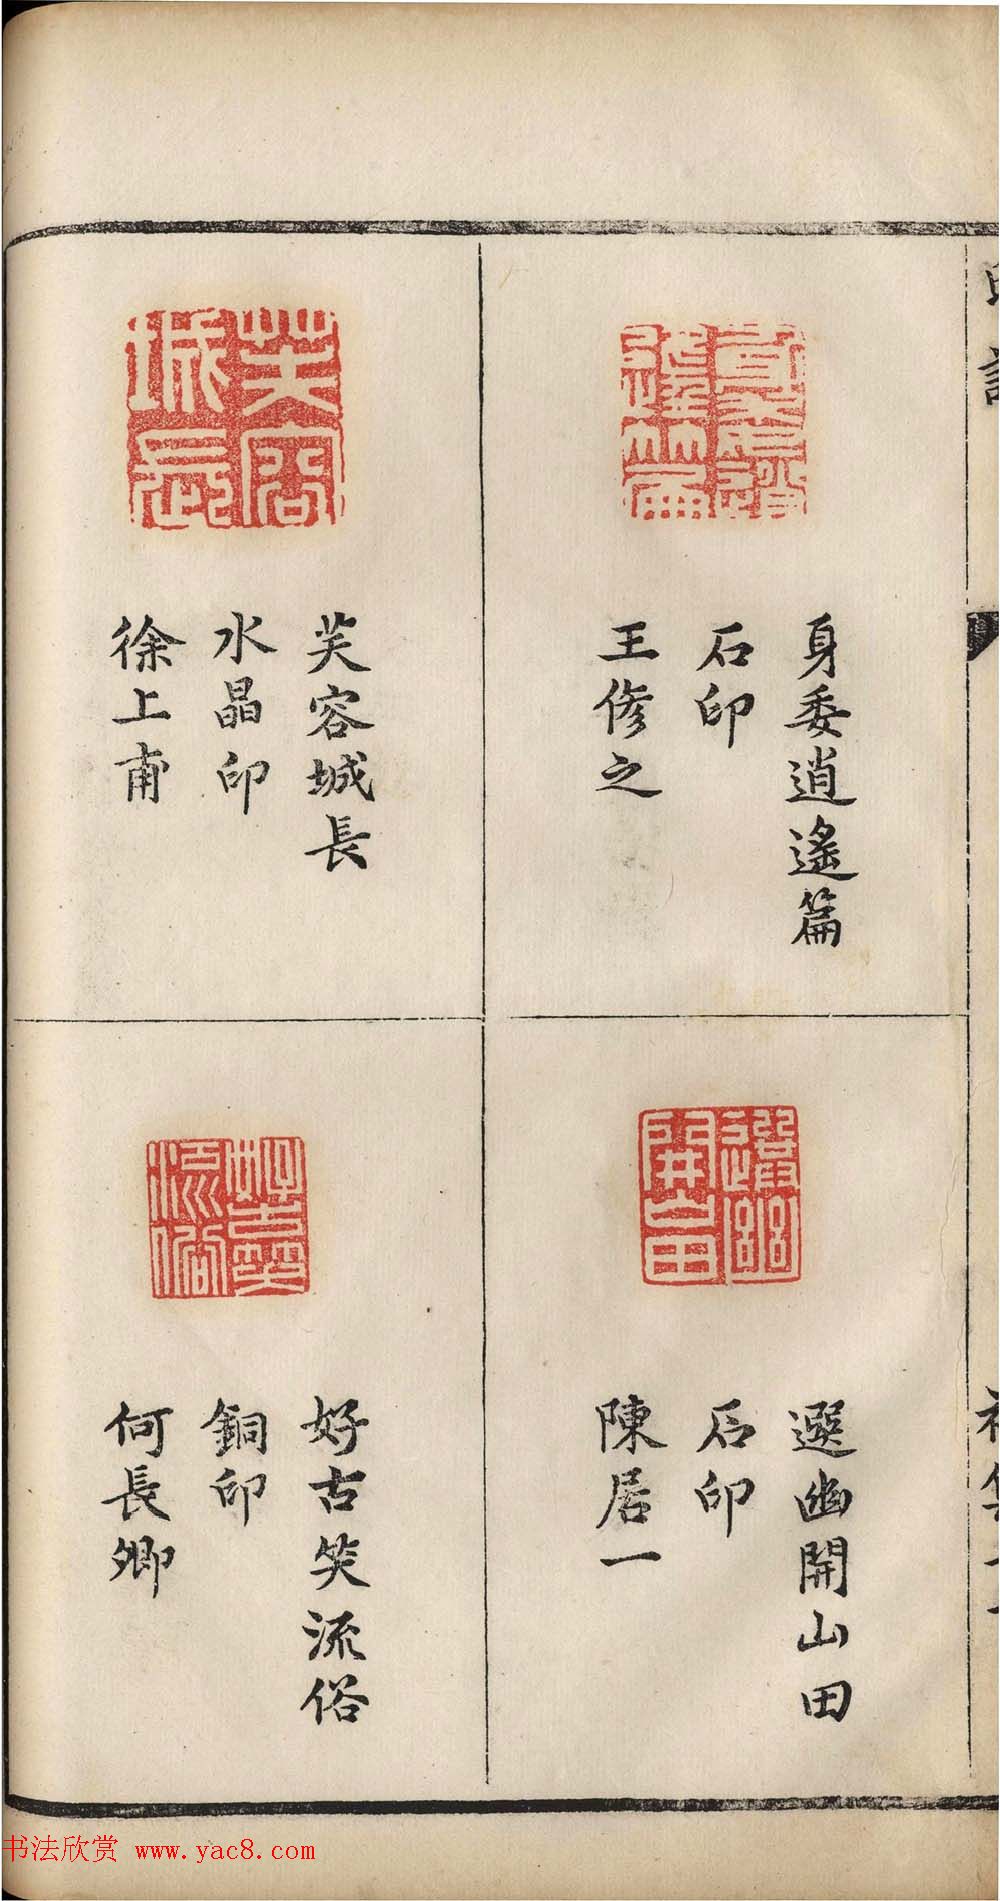 身委逍遙篇
石印
王修之
選幽開山田
石印
陳居一
芙容城長
水晶印
徐上甫
好古笑流俗
銅印
何長卿
书法欣赏 www.yac8.com